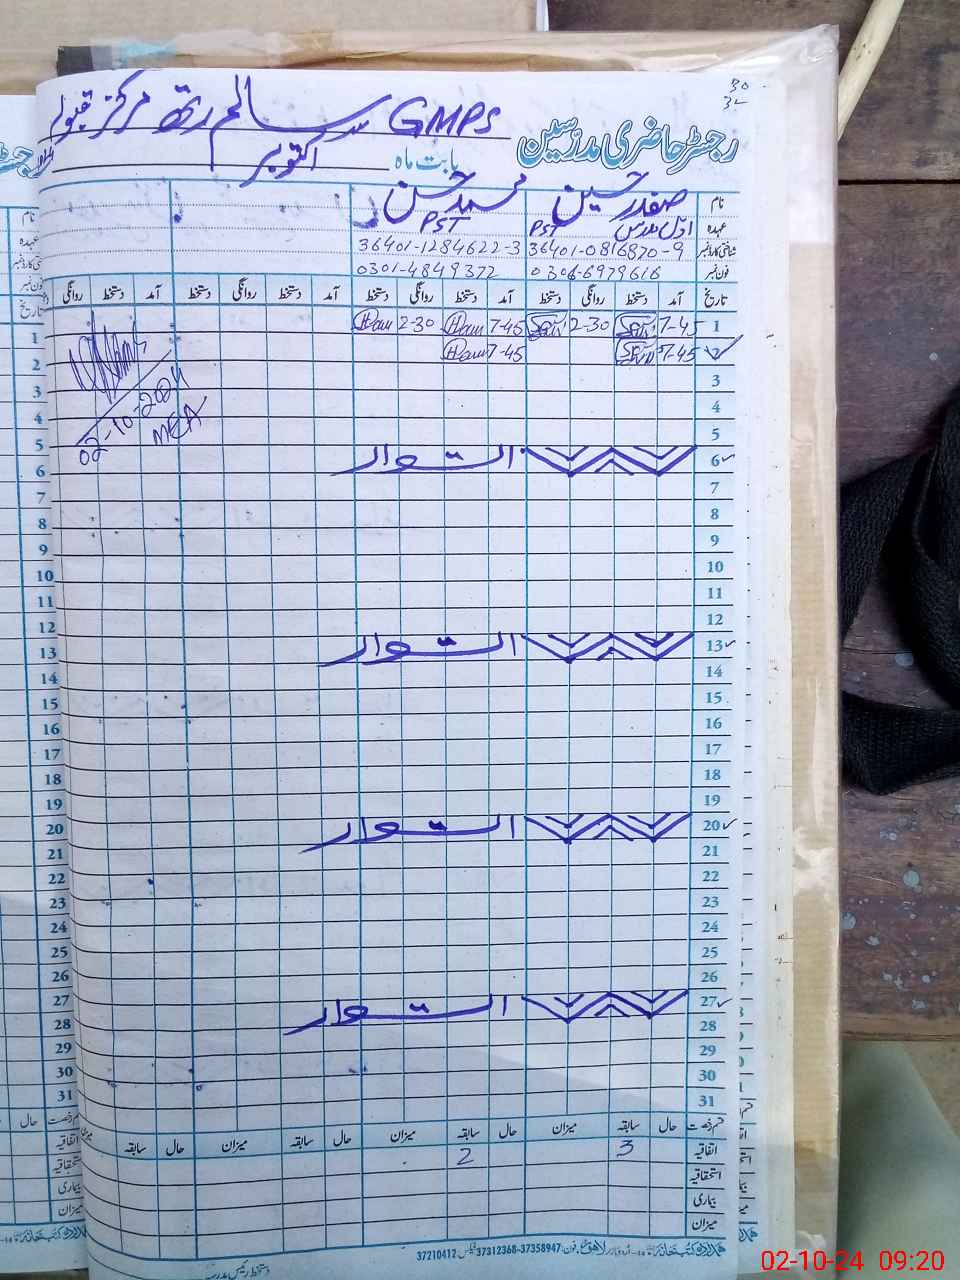 30
رجسٹر حاضری مدرسین GMPS سالم رتھ مرکز قبولہ
بابت ماہ اکتوبر
نام صفدر حسین محمد حسن
عہدہ اول مدرس PST PST
شناختی کارڈ نمبر 36401-0816870-9 36401-1284622-3
فون نمبر 0306-6979616 0301-4849372
تاریخ آمد دستخط روانگی دستخط آمد دستخط روانگی دستخط آمد دستخط روانگی دستخط آمد دستخط روانگی
1 7-45 2-30 7-45 2-30
2 7-45 7-45
02-10-2024
MEA
3
4
5
6 اتوار
7
8
9
10
11
12
13 اتوار
14
15
16
17
18
19
20 اتوار
21
22
23
24
25
26
27 اتوار
28
29
30
31
قسم رخصت حال سابقہ میزان حال سابقہ میزان حال سابقہ میزان حال سابقہ
اتفاقیہ 3 2
استحقاقیہ
بیماری
میزان
اردو بازار لاہور۔ فون: 37358947-37312368 فیکس 37210412
02-10-24 09:20